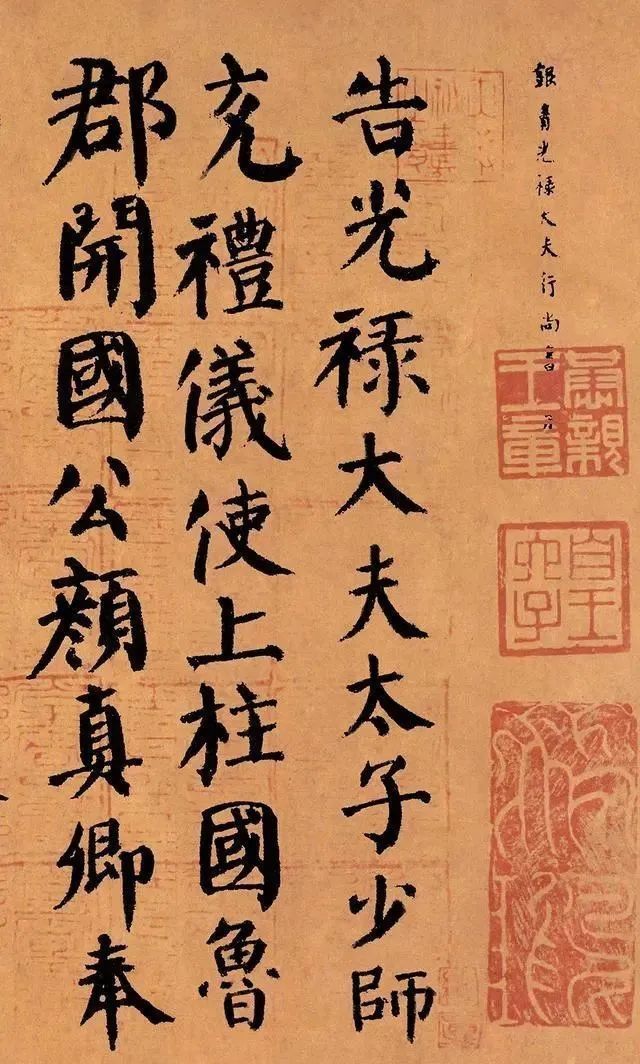 銀青光祿大夫行尚書
告光祿大夫太子少師
充禮儀使上柱國魯
郡開國公顏真卿奉
肅親王章
皇